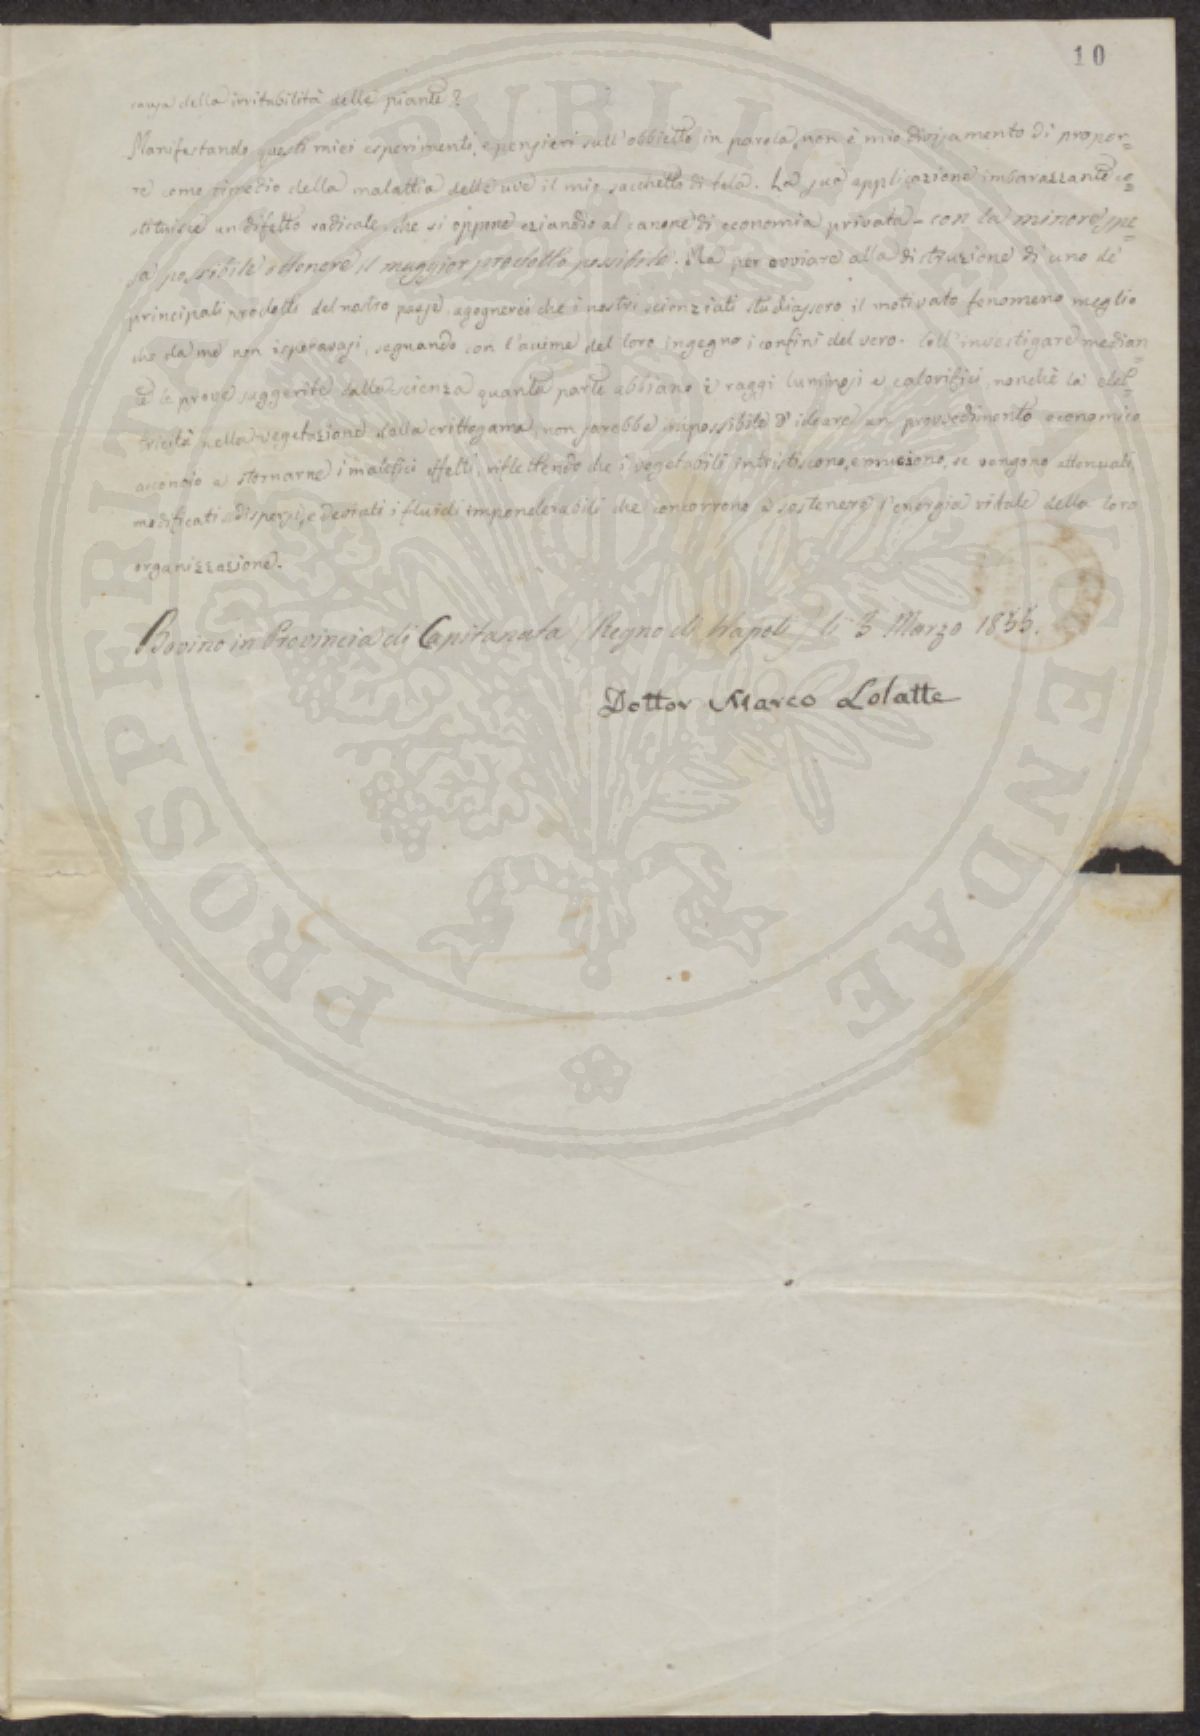 10
causa della irritabilità delle piante?
Manifestando questi miei esperimenti, e pensieri sull'obbietto in parola, non è mio divisamento di propor=
re come rimedio della malattia delle uve il mio sacchetto di tela. La sua applicazione imbarazzante co=
stituisce un difetto radicale, che si oppone eziandio al canone di economia privata - con la minore spe=
sa possibile ottenere il maggior prodotto possibile. Ma per ovviare alla distruzione di uno de'
principali prodotti del nostro paese, agognerei che i nostri scienziati studiassero il motivato fenomeno meglio
che da me non isperavasi, segnando con l'acume del loro ingegno i confini del vero. Coll'investigare median=
te le prove suggerite dalla scienza quanta parte abbiano i raggi luminosi e calorifici, nonchè la elet=
tricità nella vegetazione della crittogama, non sarebbe impossibile d'ideare un provvedimento economico
acconcio a stornarne i malefici effetti, riflettendo che i vegetabili intristiscono, e muoiono, se vengono attenuati,
modificati, dispersi, e deviati i fluidi imponderabili che concorrono a sostenere l'energia vitale della loro
organizzazione.
Bovino in Provincia di Capitanata (Regno di Napoli) li 3 Marzo 1855.
Dottor Marco Lolatte
PROSPERITATI PVBLICAE AVGENDAE